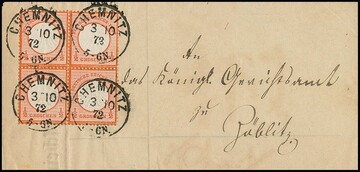 CHEMNITZ
3 10
72
5-6N.
CHEMNITZ
3 10
72
5-6N.
CHEMNITZ
3 10
72
CHEMNITZ
3 10
72
GROSCHEN
An
das Königl. Gerichtsamt
zu
Zöblitz.